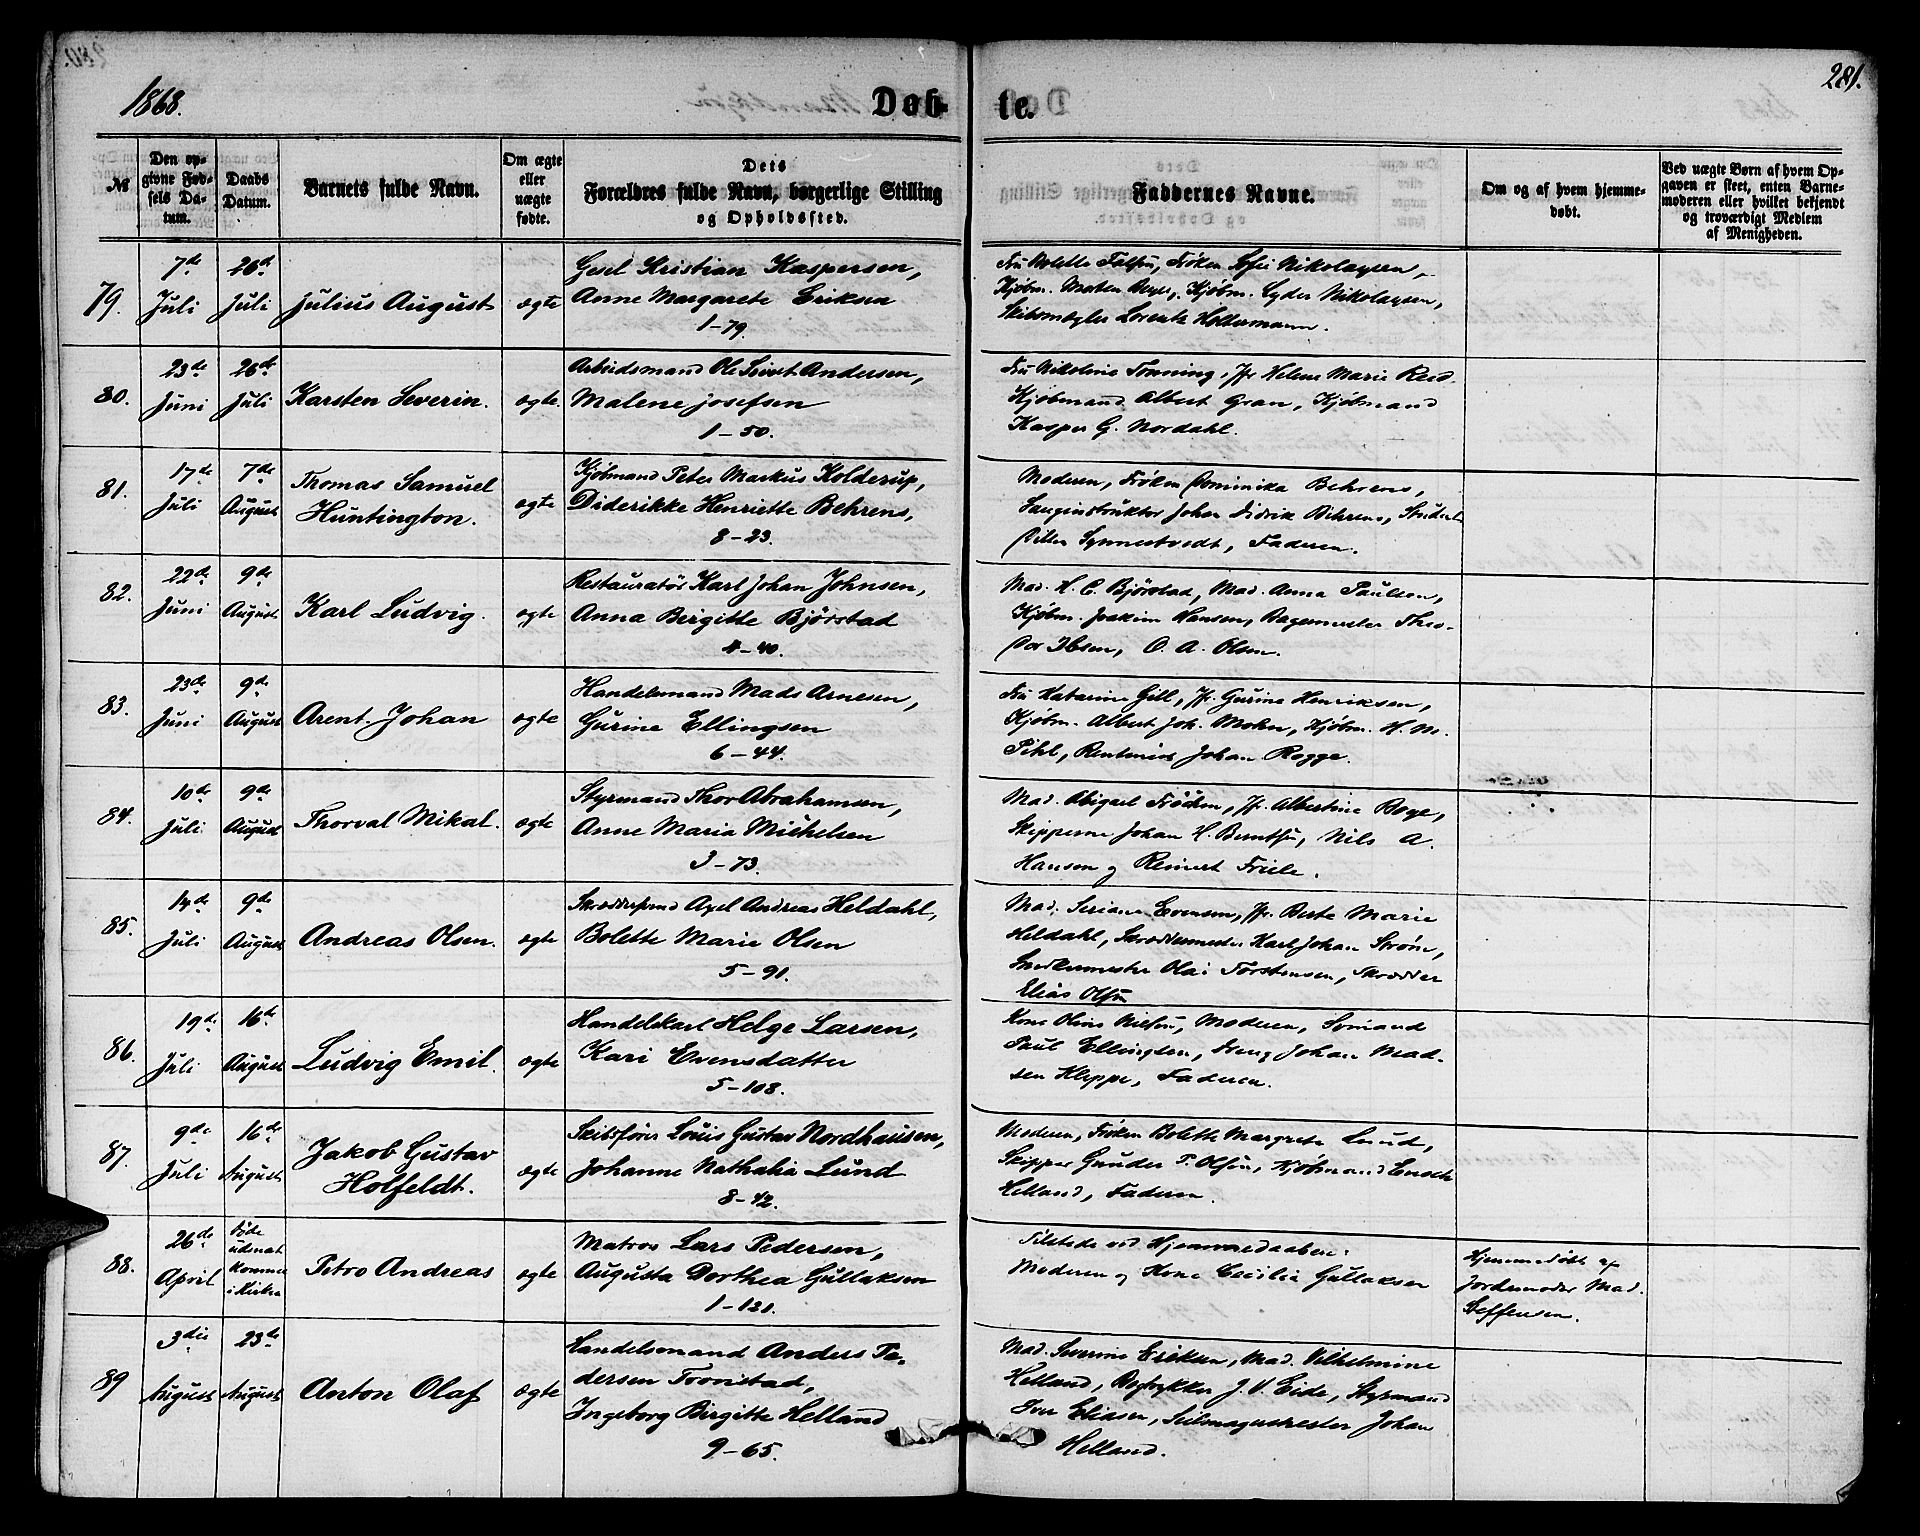 1868.
Døb-
te.
281.
№
Den op-
givne Fød-
sels Da-
tum.
Daabs
Datum.
Barnets fulde Navn.
Om ægte
eller
uægte
fødte.
Dets
Forældres fulde Navn, borgerlige Stilling
og Opholdssted.
Faddernes Navne.
Om og af hvem hjemme-
døbt.
Ved uægte Børn af hvem Op-
gaven er skeet, enten Barne-
moderen eller hvilket bekjendt
og troværdigt Medlem
af Menigheden.
79.
7de
Juli
26de
Juli
Julius August
ægte
Gesel Kristian Kaspersen,
Anne Margarete Eriksen
1-79.
Fru Bolette Falsen, Frøken Sofie Nikolaysen,
Kjøbm. Morten Beyer, Kjøbm. Lyder Nikolaysen,
Skibsmægler Lorentz Holtermann.
80.
23de
Juni
26de
Juli
Karsten Severin.
ægte.
Arbeidsmand Ole Sivert Andersen,
Malene Josefsen
1-50.
Fru Nikoline Tonning, Jfr Helene Marie Reid.
Kjøbmand Albert Gran, Kjøbmand
Kasper G. Nordahl.
81.
17de
Juli
7de
August
Thomas Samuel
Huntington.
ægte
Kjøbmand Peter Markus Kolderup,
Diderikke Henriette Behrens,
8-23.
Moderen, Frøken Dominika Behrens,
Sanginstruktør Johan Didrik Behrens, Student
Ditlev Synnestvedt, Faderen.
82.
22de
Juni
9de
August
Karl Ludvig.
ægte
Restauratør Karl Johan Johnsen,
Anna Birgitte Bjørstad
4-40.
Mad. H. C. Bjørstad, Mad. Anna Paulsen,
Kjøbm. Joakim Hansen, Bagermester Theo-
dor Ibsen, O. A. Olsen.
83.
23de
Juni
9de
August
Arent. Johan
ægte
Handelsmand Mads Arnesen,
Gurine Ellingsen
6-44.
Fru Katarine Gill, Jfr. Gurine Henriksen,
Kjøbm. Albert Joh. Mohn, Kjøbm. H. M.
Pihl, Rentenist Johan Rogge.
84.
10de
Juli
9de
August
Thorval Mikal.
ægte
Styrmand Thor Abrahamsen,
Anne Maria Michelsen
3-73.
Mad. Abigael Frøchen, Jfr. Albertine Boge,
Skipperne Johan H. Berntsen, Nils A.
Hansen og Reinert Friele.
85.
14de
Juli
9de
August
Andreas Olsen.
ægte
Skræddersvend Axel Andreas Heldahl,
Bolette Marie Olsen
5-91.
Mad. Seriane Evensen, Jfr. Berte Marie
Heldahl, Skræddermester Karl Johan Strøm,
Snedkermester Olai Torstensen, Skrædder
Elias Olsen
86.
19de
Juli
16de
August
Ludvig Emil.
ægte
Handelskarl Helge Larsen,
Kari Evensdatter
5-108.
Kone Oline Nilsen, Moderen, Sømand
Paul Ellingsen, Dreng Johan Mad-
sen Kleppe, Faderen.
87.
9de
Juli
16de
August
Jakob Gustav
Holfeldt.
ægte
Skibsfører Louis Gustav Nordhausen,
Johanne Nathalia Lund
8-42.
Moderen, Frøken Bolette Margrete Lund,
Skipper Gunder T. Olsen, Kjøbmand Enoch
Helland, Faderen.
88.
26de
April
Døde
uden at
komme
i Kirken
Petro Andreas
ægte
Matros Lars Pedersen,
Augusta Dorthea Gullaksen
1-121.
Tilstede ved Hjemmedaaben:
Moderen og Kone Cecilia Gullaksen
Hjemmedøbt af
Jordemoder Mad.
Steffensen.
89
3die
August
23de
August
Anton Olaf
ægte
Handelsmand Anders Pe-
dersen Tronstad,
Ingeborg Birgitte Helland
9-65.
Mad. Severine Eriksen, Mad. Vilhelmine
Helland, Bogtrykker J. V. Eide, Styrmand
Iver Eliasen, Seilmagermester Johan
Helland.